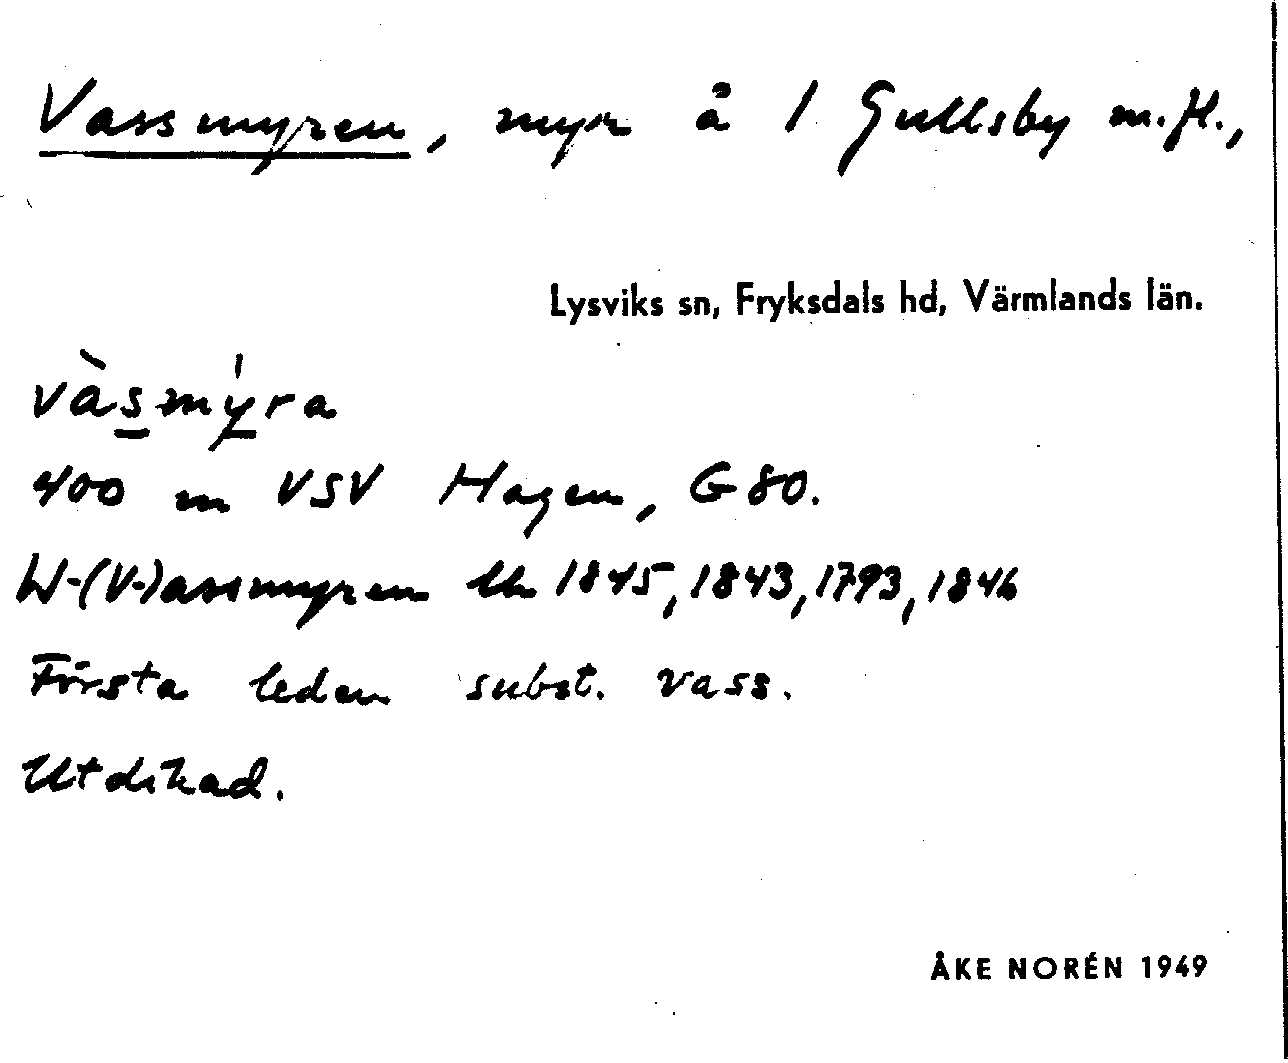 Vassmyren, myr å 1 Gullsby m.fl.,
Lysviks sn, Fryksdals hd, Värmlands län.
vàsmýra
400 m VSV Hagen, G80.
W-(V-)assmyren lk 1845, 1843, 1793, 1846
Första leden subst. vass.
Utdikad.
ÅKE NORÉN 1949